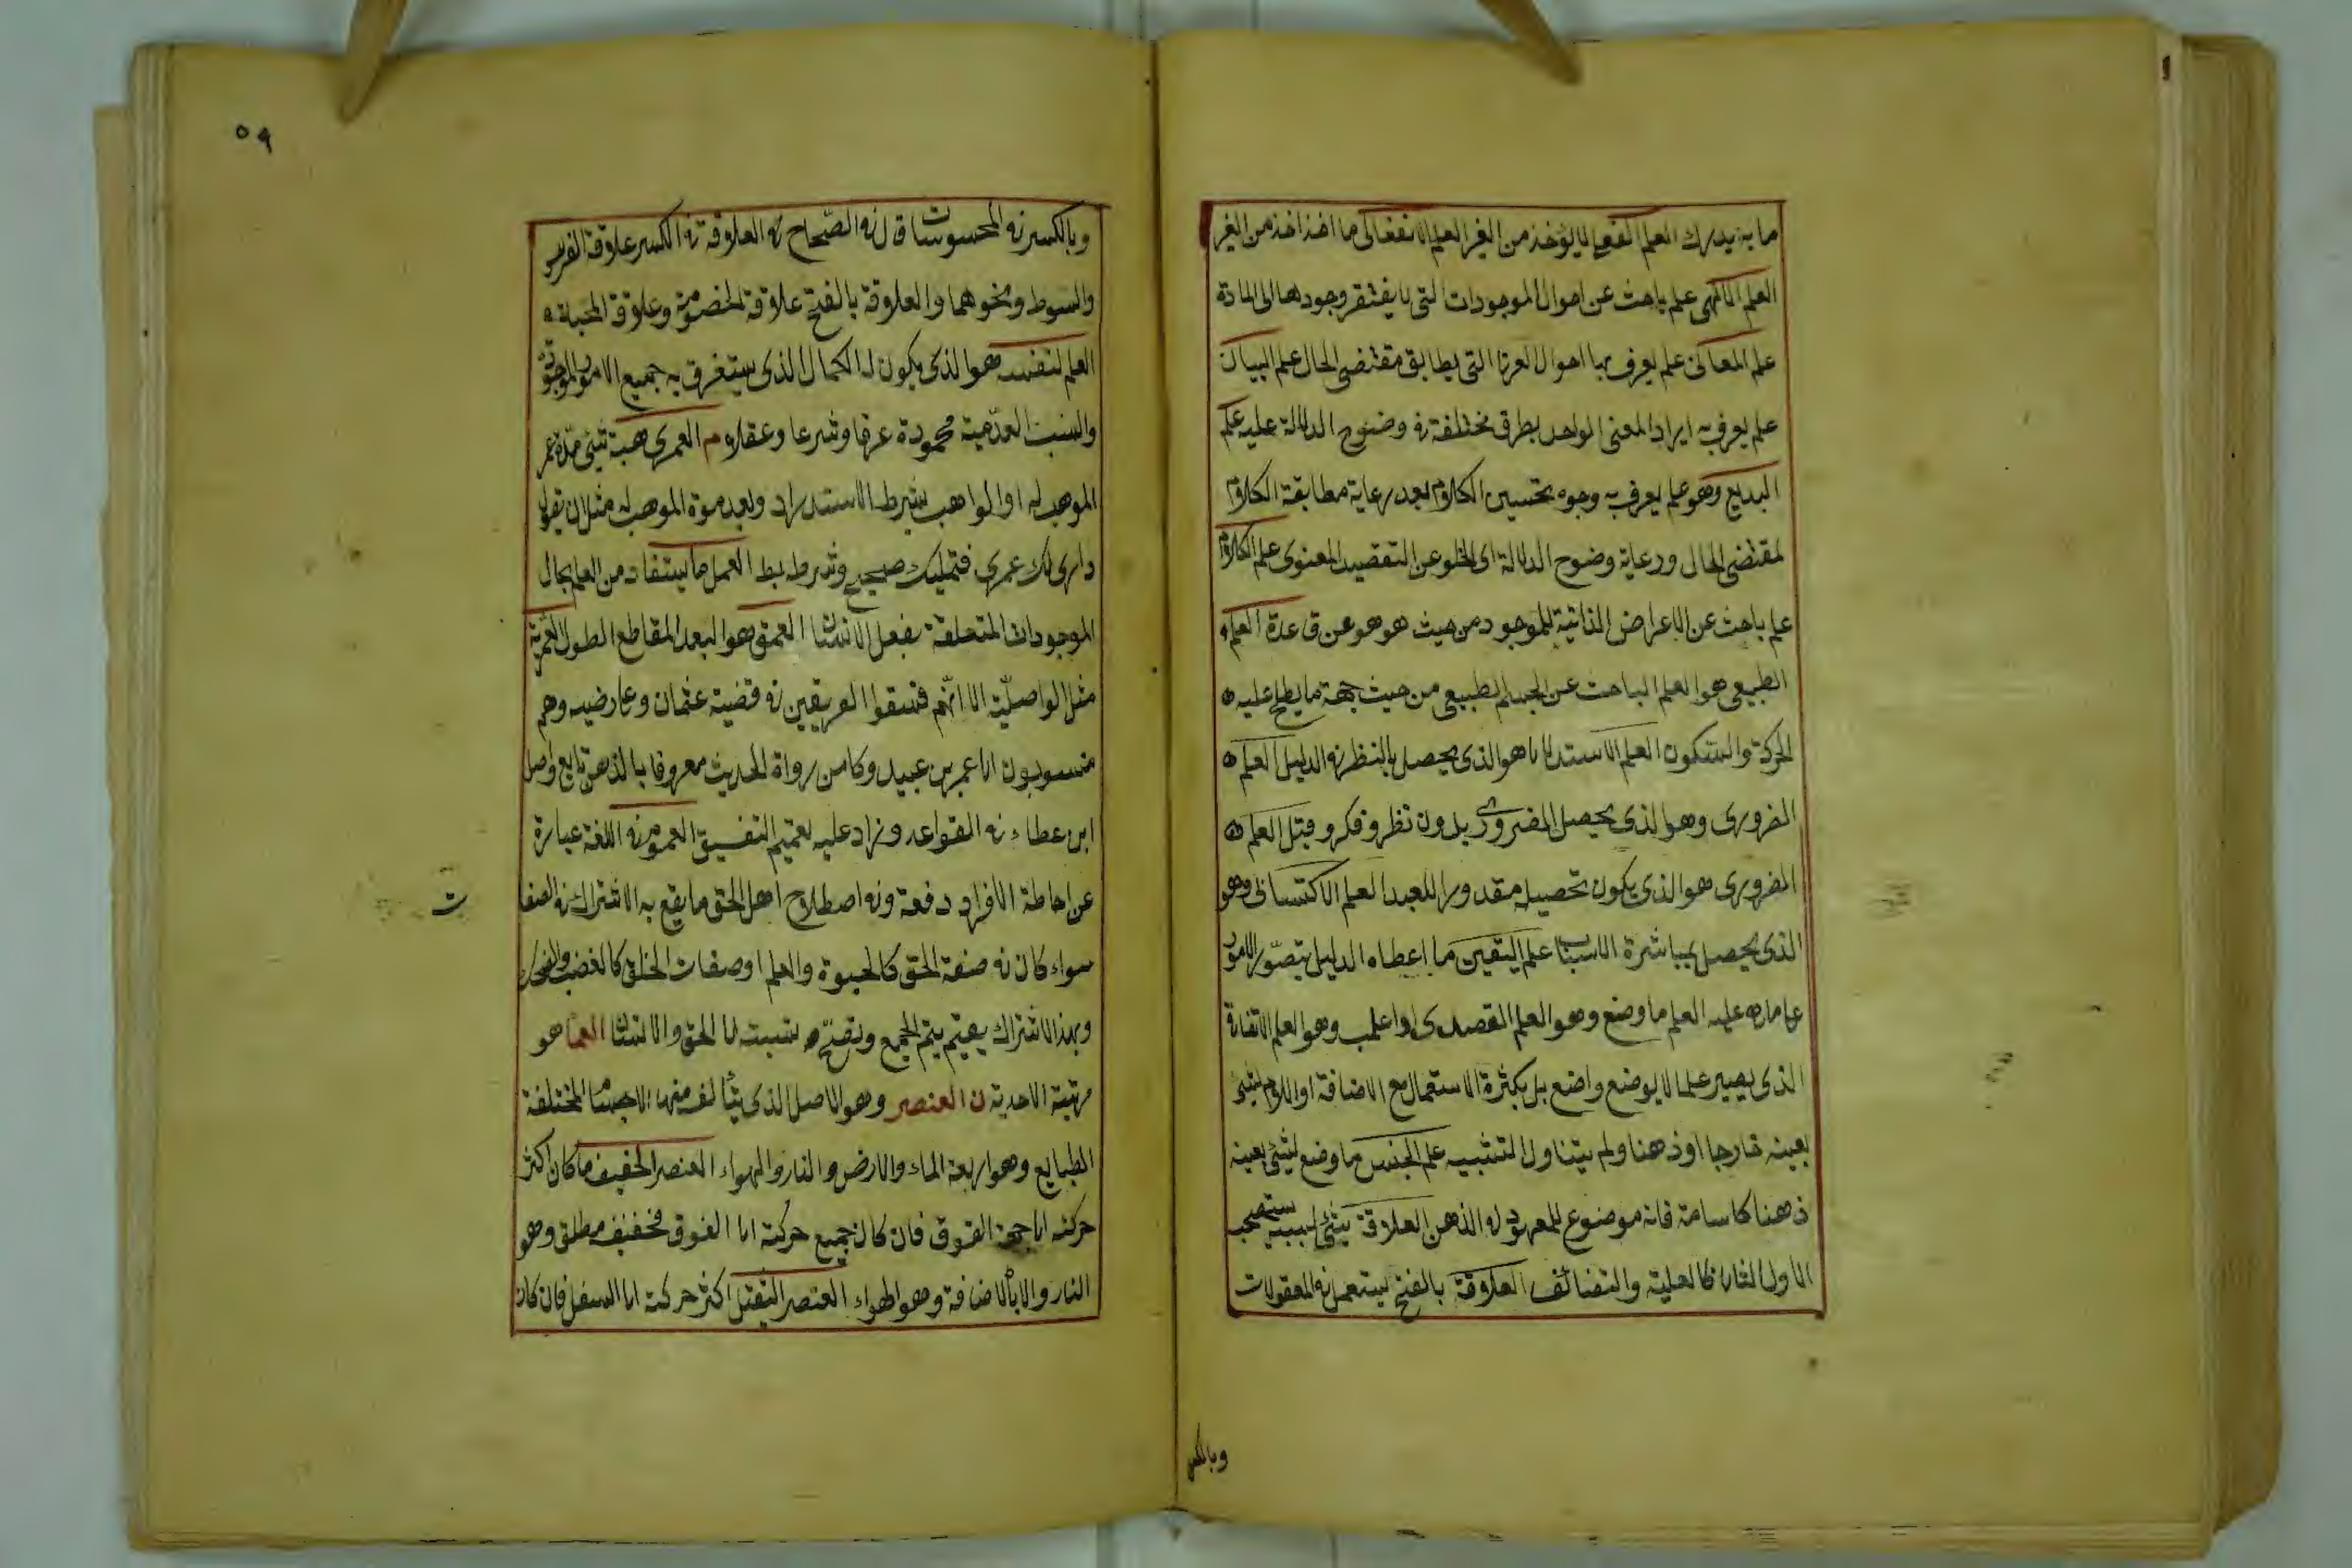 ما به يدرك العلم الفعلي لا يؤخذ من الغير العلم الانفعالي ما اخذ اخذ من الغير
العلم الالهي علم باحث عن احوال الموجودات التي لا يفتقر وجودها الى المادة
علم المعاني علم يعرف بها احوال العربي التي يطابق مقتضى الحال علم البيان
علم يعرف به ايراد المعنى الواحد بطرق مختلفة في وضوح الدلالة عليه علم
البديع وهو علم يعرف به وجوه تحسين الكلام بعد رعاية مطابقة الكلام
لمقتضى الحال ورعاية وضوح الدلالة اى الخلو عن التقصيد المعنوى علم الكلام
علم باحث عن الاعراض الذاتية للموجود من حيث هو هو عن قاعدة العلم
الطبيعي هو العلم الباحث عن الجسم الطبيعي من حيث جهة ما يطح عليه
الحركة والسكون العلم الاستدلالى هو الذى يحصل بالنظر في الدليل العلم
الضرورى وهو الذى يحصل الضرورى بدون نظر و فكر و قبل العلم
الضرورى هو الذى يكون تحصيله مقدورا للعبد العلم الاكتسابى وهو
الذى يحصل بمباشرة الاسباب علم اليقين ما اعطاه الدليل بتصور الامور
على ما هى عليه العلم ما وضع وهو العلم القصدى او اغلب وهو العلم الاتفاقى
الذى يصير علما لا بوضع واضع بل بكثرة الاستعمال مع الاضافة او اللام لشئ
بعينه خارجا او ذهنا ولم يتناول التشبيه علم الجنس ما وضع لشئ بعينه
ذهنا كاسامة فانه موضوع للمعهود في الذهن العلاقة شئ بسببه يستصحب
الاول الثانى كالعلية والتضائف العلاقة بالفتح يستعمل في المعقولات
وبالكسر
٥٩
وبالكسر في المحسوسات قال في الصحاح في العلاقة في الكسر علاقة القوس
والسوط ونحوهما والعلاقة بالفتح علاقة الخصومة وعلاقة المحبة
العلم لنفسه هو الذى يكون له الكمال الذى يستغرق به جميع الامور الموجودة
والنسب العدمية محمودة عرفا وشرعا وعقلا م العمرى هبة شئ مدة عمر
الموهب له او الواهب بشرط الاستدراد وبعد موة الموهب له مثل ان يقول
دارى لك عمرى فتمليك صحيح وشرط بط العمل ما يستفاد من العلم بحال
الموجودات المتعلقة بفعل الانسان العمق هو البعد المقاطع الطول العمرية
مثل الواصلية الا انهم فسقوا الفريقين في قضية عثمان وعارضيه وهم
منسوبون الى عمر بن عبيد وكا من رواة الحديث معروفا بالذهن تابع واصل
ابن عطاء في القواعد وزاد عليه تعميم التفسيق العموم في اللغة عبارة
عن احاطة الافراد دفعة وفي اصطلاح اهل الحق ما يقع به الاشتراك في الصفا
ت
سواء كان في صفة الحق كالحيوة والعلم او صفات الخلق كالغضب والضحك
وبهذا الاشتراك يعتم يتم الجمع وتصح نسبته الى الحق والانسان العما هو
مرتبة الاحدية ن العنصر وهو الاصل الذى يتألف منها الاجسام المختلفة
الطبايع وهو اربعة الماء والارض والنار والهواء العنصر الخفيف ما كان اكثر
حركته الى جهة الفوق فان كان جميع حركته الى الفوق فخفيف مطلق وهو
النار والا بالاضافة وهو الهواء العنصر الثقيل اكثر حركته الى السفل فان كان